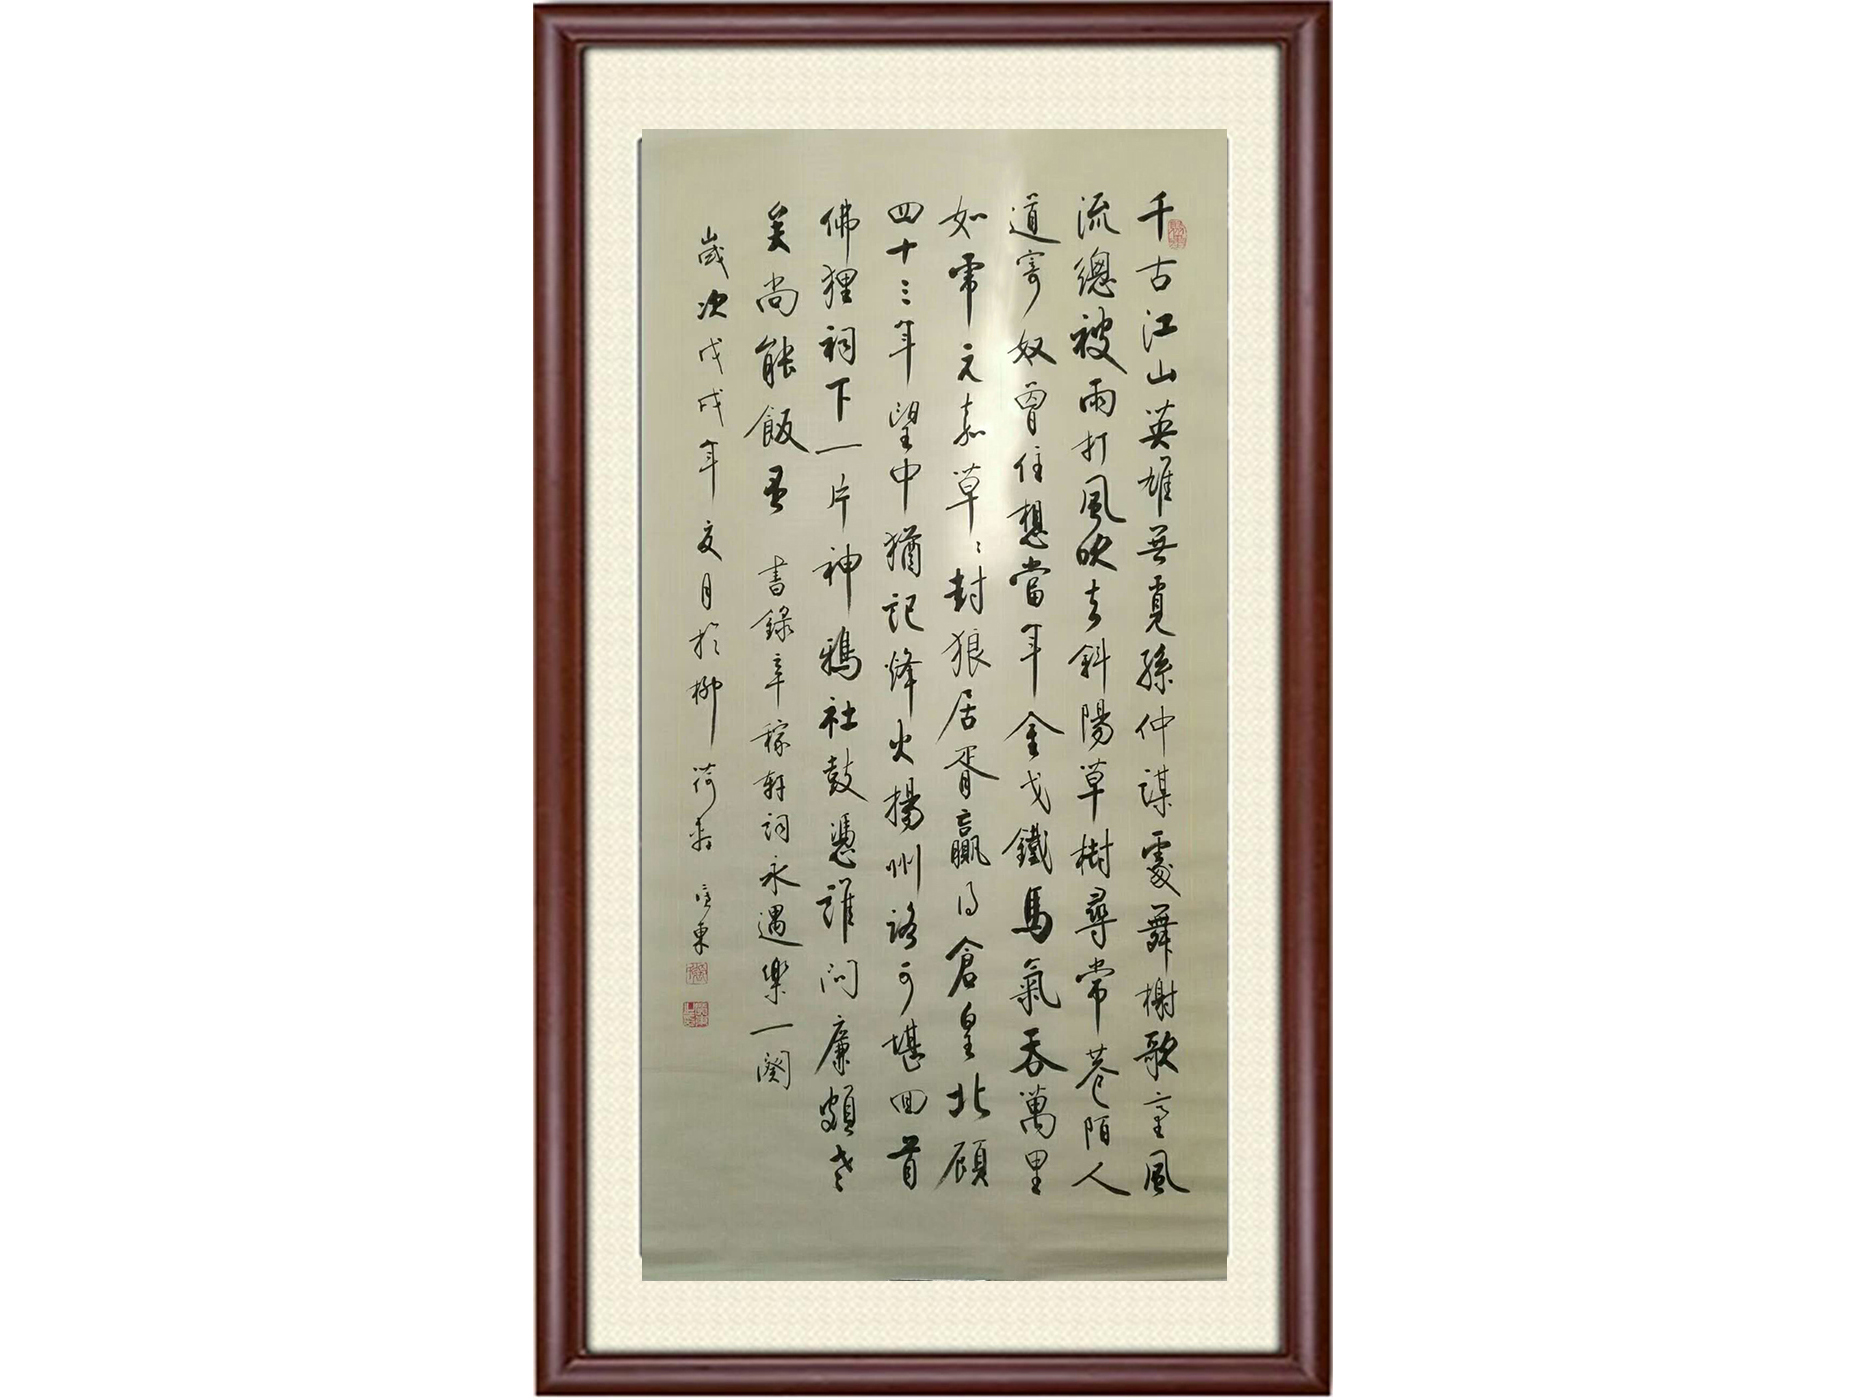 千古江山英雄無覓孫仲謀處舞榭歌臺風
流總被雨打風吹去斜陽草樹尋常巷陌人
道寄奴曾住想當年金戈鐵馬氣吞萬里
如虎元嘉草〻封狼居胥贏得倉皇北顧
四十三年望中猶記烽火揚州路可堪回首
佛狸祠下一片神鴉社鼓憑誰問廉頗老
矣尚能飯否 書錄辛稼軒詞永遇樂一闋
歲次戊戌年夏月於柳荷軒 東